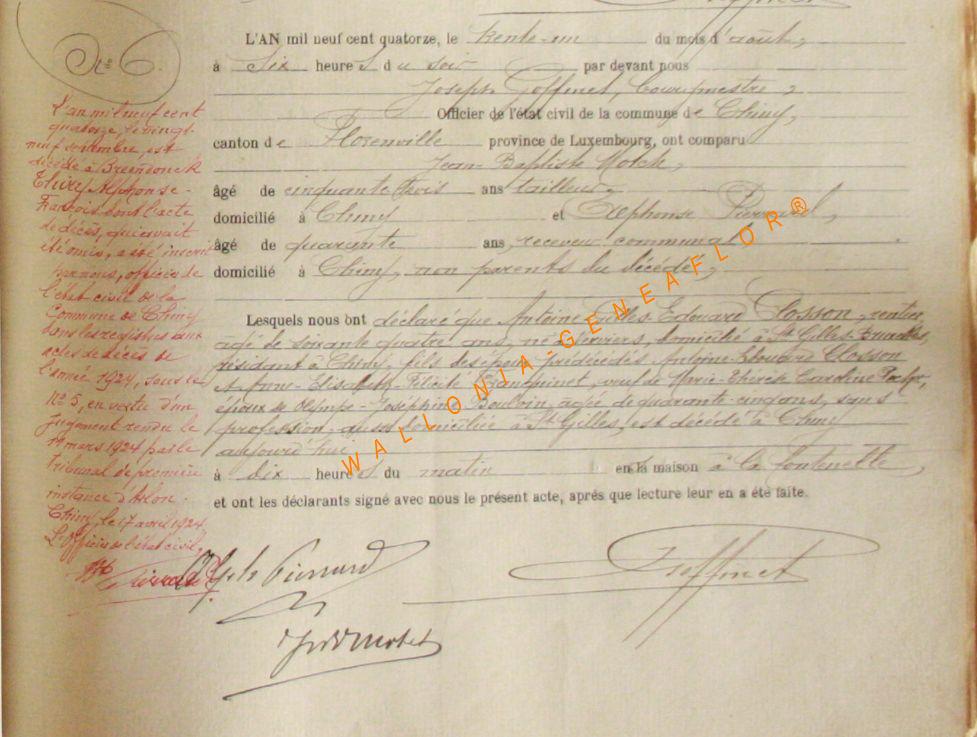 N° 6.
L'AN mil neuf cent quatorze, le trente-un du mois d'août,
à six heures du soir par devant nous
Joseph Goffinet, bourgmestre,
Officier de l'état civil de la commune de Chiny,
canton de Florenville province de Luxembourg, ont comparu
Jean-Baptiste
âgé de cinquante trois ans tailleur,
domicilié à Chiny et Alphonse Pierrard,
âgé de quarante ans, receveur communal
domicilié à Chiny, non parents du décédé,
Lesquels nous ont déclaré que Antoine Edouard Closson, rentier,
âgé de soixante quatre ans, né à Verviers, domicilié à St Gilles-Bruxelles,
résidant à Chiny, fils des époux prédécédés Antoine-Edouard Closson
et Anne-Elisabeth-Félicité Franquinet, veuf de Marie-Thérèse Caroline
époux de Olympe-Joséphine Boulvin, âgée de quarante-cinq ans, sans
profession, domiciliée à St Gilles, est décédé à Chiny
aujourd'hui
à dix heures du matin en la maison à la fontenelle,
et ont les déclarants signé avec nous le présent acte, après que lecture leur en a été faite.
L'an mil neuf cent
quatorze, le vingt-
neuf septembre, est
décédé à Breendonck
Thiry Alphonse-
François dont l'acte
de décès, qui avait
été omis, a été inscrit
par nous, officier de
l'état civil de la
Commune de Chiny
dans les registres aux
actes de décès de
l'année 1924, sous le
N° 5, en vertu d'un
jugement rendu le
mars 1924 par le
Tribunal de première
instance d'Arlon.
Chiny, le 17 avril 1924
L'officier de l'état civil,
Pierrard
Goffinet
WALLONIA-GENEAFLOR®